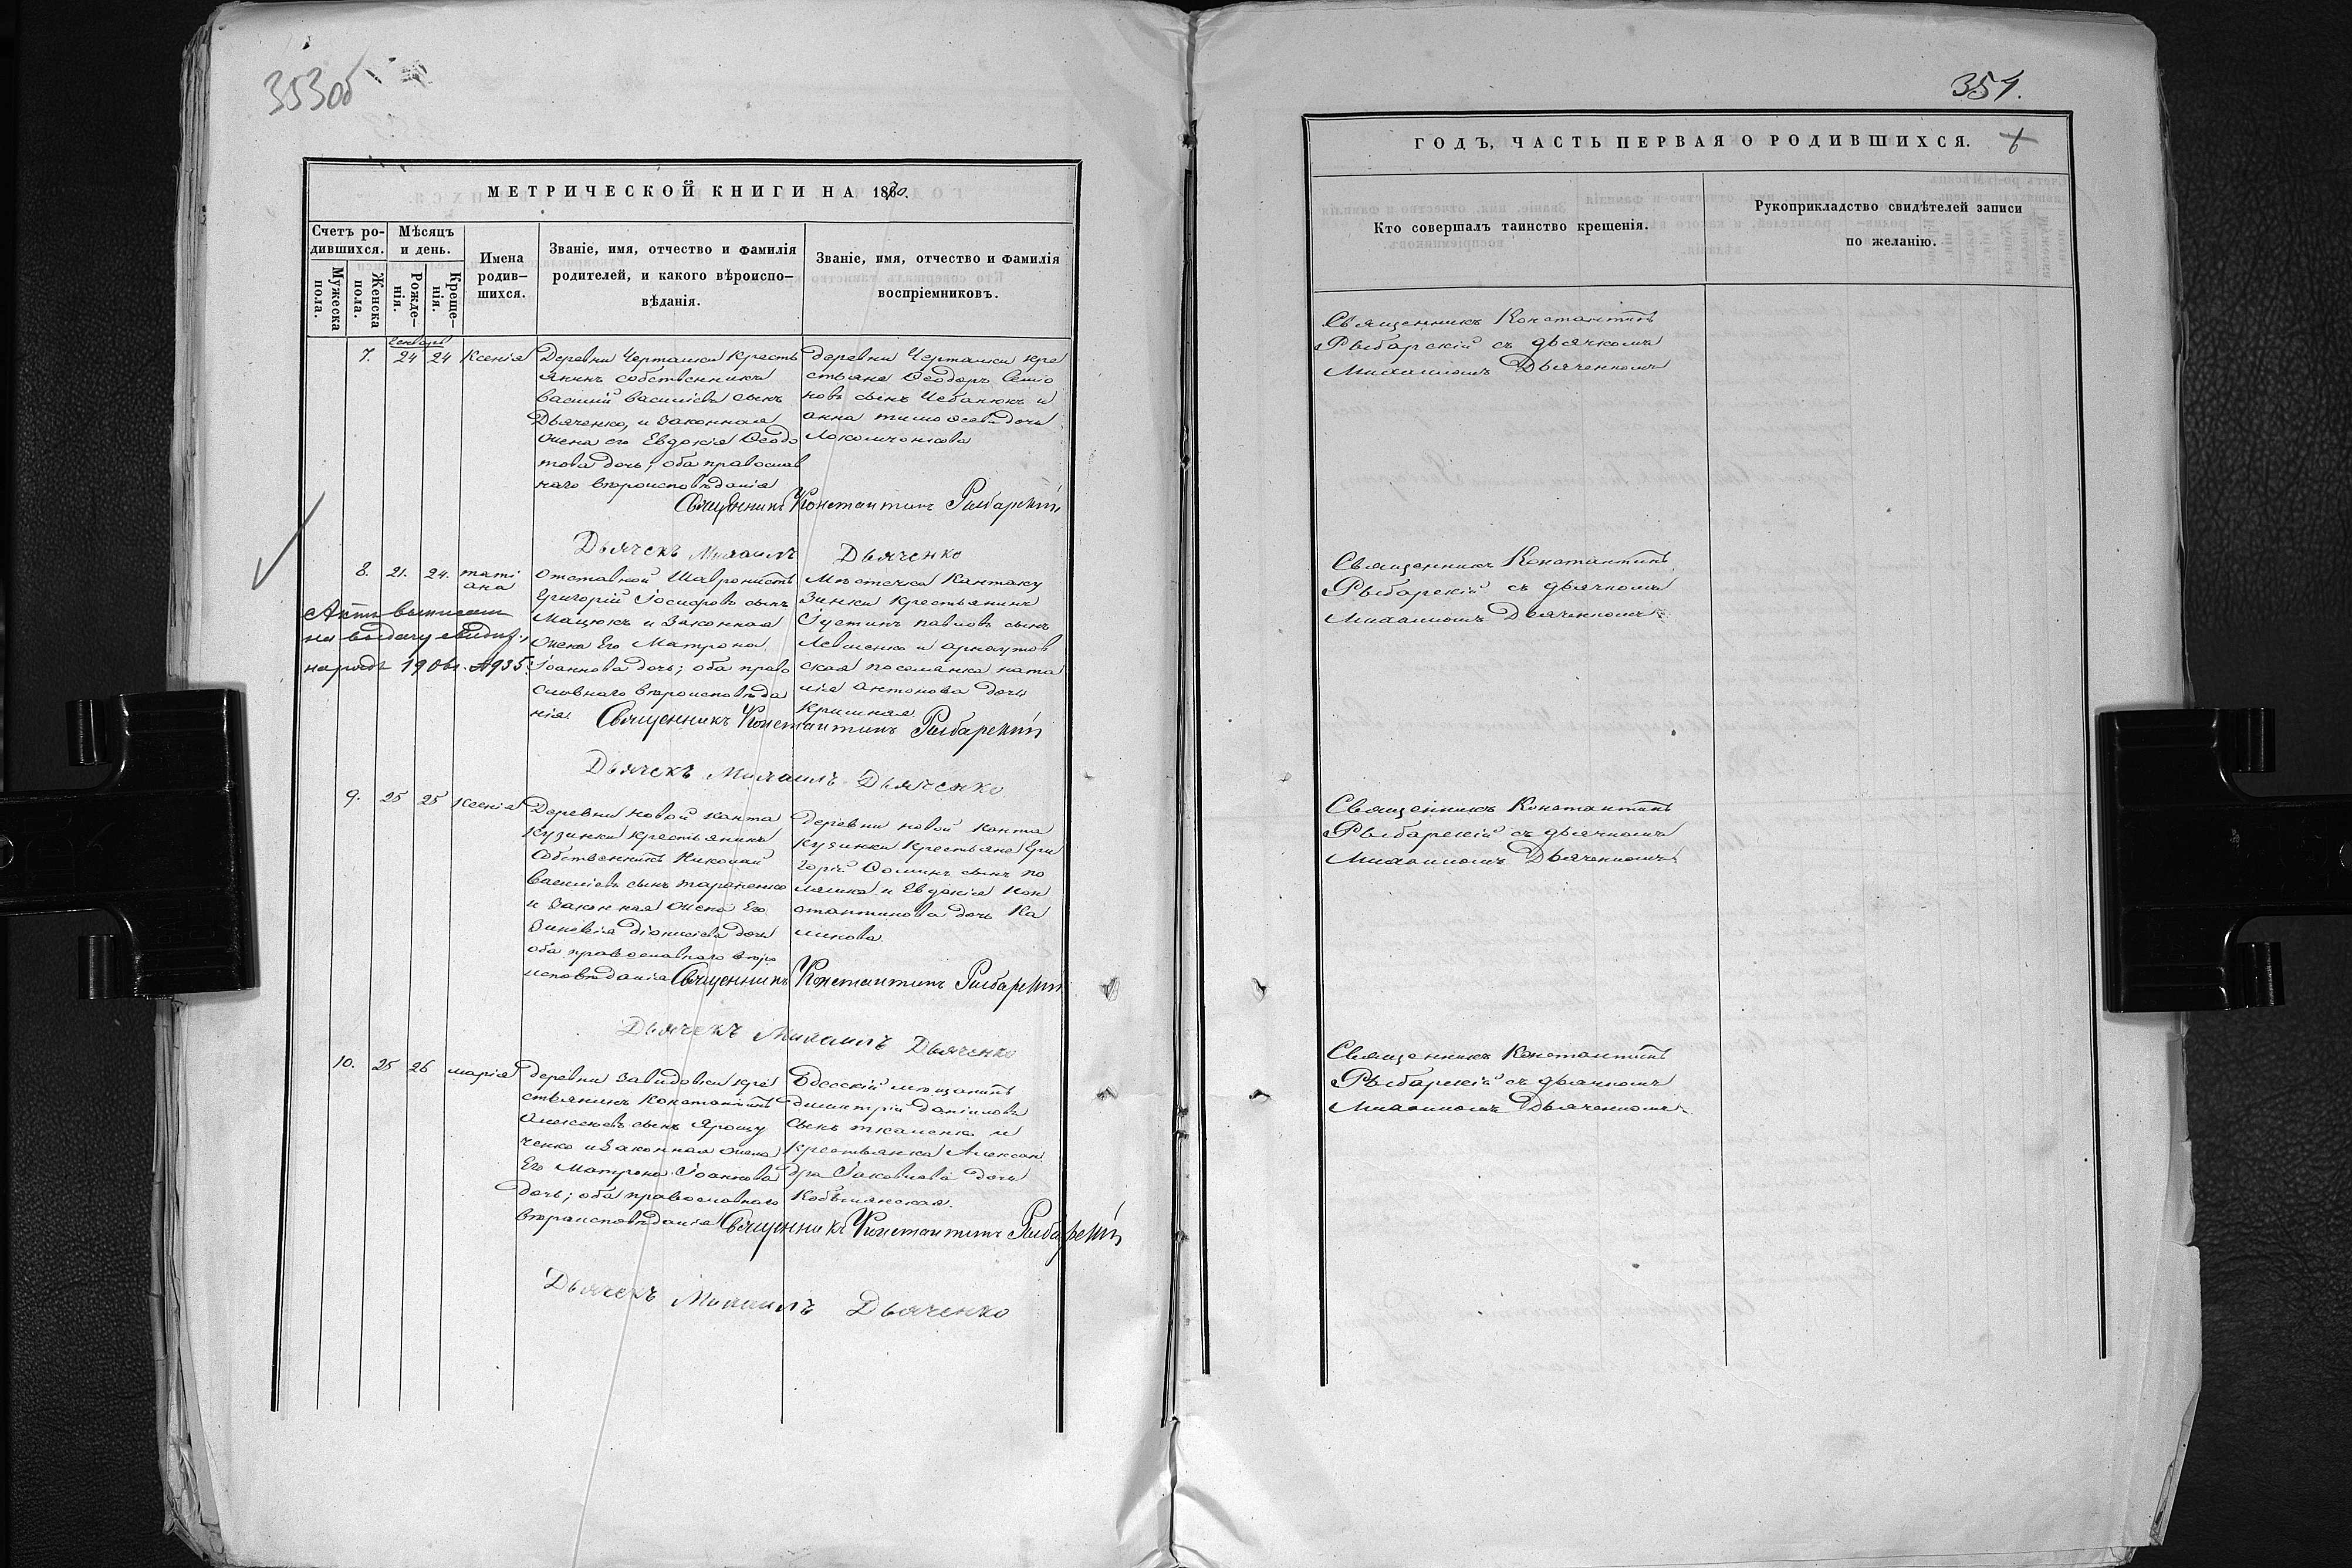 353об
МЕТРИЧЕСКОЙ КНИГИ НА 1870.
Счетъ ро-
дившихся.
Мужеска пола.
Женска пола.
Мѣсяцъ и день.
Рожде-
нія.
Креще-
нія.
Имена
родив-
шихся.
Званіе, имя, отчество и фамилія
родителей, и какого вѣроиспо-
вѣданія.
Званіе, имя, отчество и фамилія
воспріемниковъ.
Генварь
7. 24 24 Ксенія
Деревни Черташки кресть
янинъ собственникъ
Василій Василіевъ сынъ
Дьяченко, и законная
жена его Евдокія Ѳеодо
това дочь; оба православ
наго вѣроисповѣданія
деревни Черташки кре
стьяне Ѳеодоръ Семіо
новъ сынъ Чебанюкъ и
анна тимоѳеева дочь
Священникъ Константинъ Рыбарскій
Дьячекъ Михаилъ Дьяченко
8. 21. 24. тати
ана
Актъ выписанъ
на выдачу свидѣт.,
1906г. №935.
отставной
Григорій Іосифовъ сынъ
Мацюкъ и законная
жена Его Матрона
Іоаннова дочь; оба право
славнаго вѣроисповѣда
нія
Мѣстечка Кантаку
зинки крестьянинъ
Іустинъ павловъ сынъ
Левченко и арнаутов
ская поселянка ната
лія антонова дочь
Священникъ Константинъ Рыбарскій
Дьячекъ Михаилъ Дьяченко
9. 25 25 Ксенія
Деревни новой канта
кузинки крестьянинъ
собственникъ Николай
Василіевъ сынъ тараненко
и законная жена Его
Зиновія діонисіева дочь
оба православнаго вѣро
исповѣданія
деревни новой канта
кузинки крестьяне Гри
горій Ѳоминъ сынъ по
ляшко и Евдокія Кон
стантинова дочь Ка
линова.
Священникъ Константинъ Рыбарскій
Дьячекъ Михаилъ Дьяченко
10. 25 26 марія
деревни Завидовки кре
стьянинъ Константинъ
Алексіевъ сынъ Ярошу
ченко и законная жена
Его Матрона Іоаннова
дочь; оба православнаго
вѣроисповѣданія
Одесскій мѣщанинъ
димитрій даніиловъ
сынъ ткаченко и
крестьянка Алексан
дра Іаковлева дочь
Кобылянская.
Священникъ Константинъ Рыбарскій
Дьячекъ Михаилъ Дьяченко
354.
ГОДЪ, ЧАСТЬ ПЕРВАЯ О РОДИВШИХСЯ.
Кто совершалъ таинство крещенія.
Рукоприкладство свидѣтелей записи
по желанію.
Священникъ Константинъ
Рыбарскій съ дьячкомъ
Михаиломъ Дьяченкомъ
Священникъ Константинъ
Рыбарскій съ дьячкомъ
Михаиломъ Дьяченкомъ
Священникъ Константинъ
Рыбарскій съ дьячкомъ
Михаиломъ Дьяченкомъ
Священникъ Константинъ
Рыбарскій съ дьячкомъ
Михаиломъ Дьяченкомъ